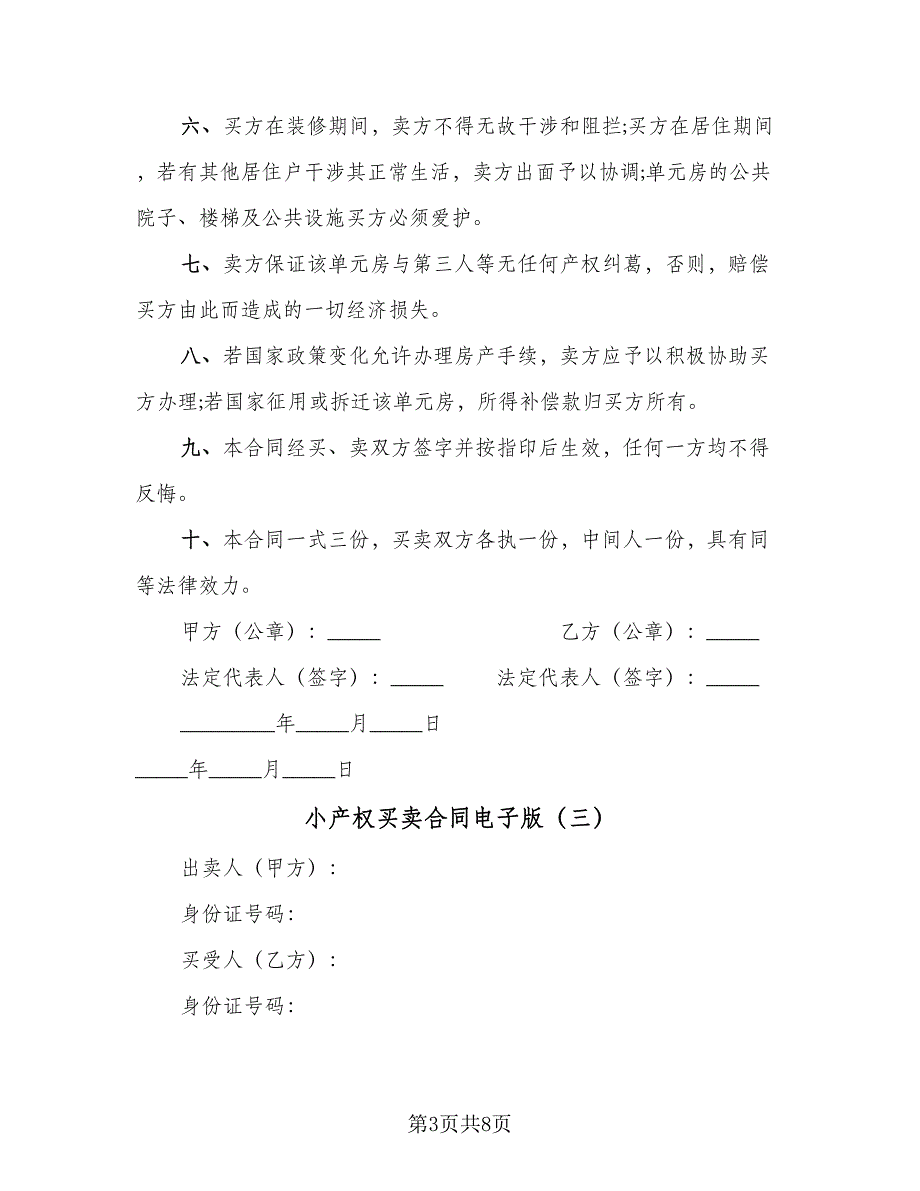 六、买方在装修期间，卖方不得无故干涉和阻拦;买方在居住期间
，若有其他居住户干涉其正常生活，卖方出面予以协调;单元房的公共
院子、楼梯及公共设施买方必须爱护。
七、卖方保证该单元房与第三人等无任何产权纠葛，否则，赔偿
买方由此而造成的一切经济损失。
八、若国家政策变化允许办理房产手续，卖方应予以积极协助买
方办理;若国家征用或拆迁该单元房，所得补偿款归买方所有。
九、本合同经买、卖双方签字并按指印后生效，任何一方均不得
反悔。
十、本合同一式三份，买卖双方各执一份，中间人一份，具有同
等法律效力。
甲方（公章）：_____ 乙方（公章）：_____
法定代表人（签字）：_____ 法定代表人（签字）：_____
_________年_____月_____日
_____年_____月_____日
小产权买卖合同电子版（三）
出卖人（甲方）：
身份证号码：
买受人（乙方）：
身份证号码：
第3页共8页